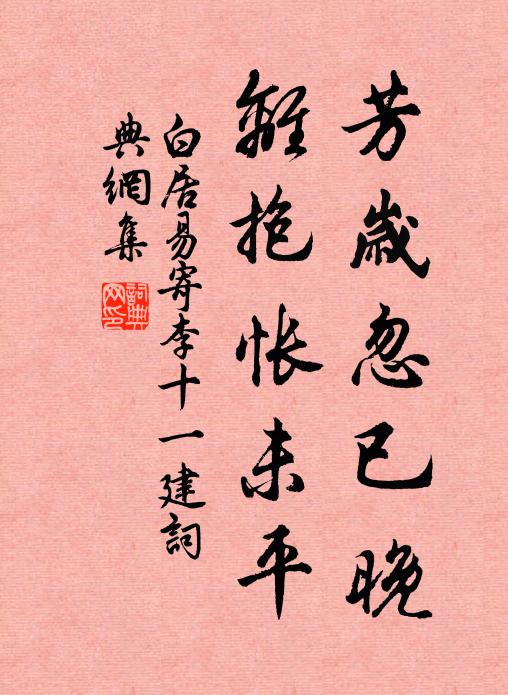 芳歲忽已晚
離抱悵未平
白居易寄李十一建詞
典網集
詞典网印